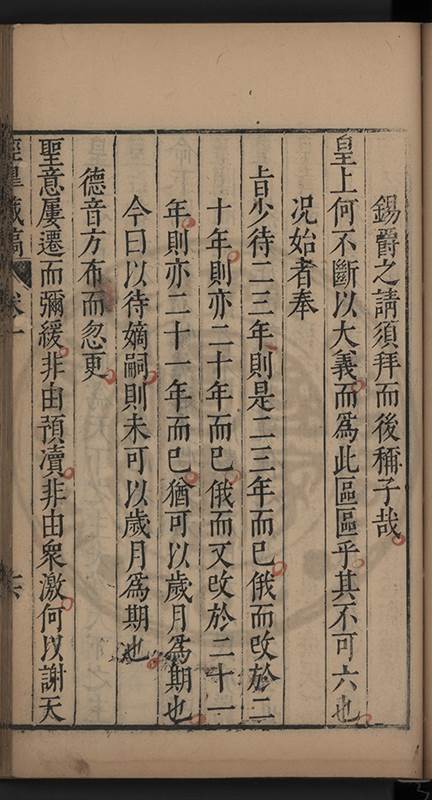 錫爵之請須拜而後稱子哉
皇上何不斷以大義而爲此區區乎其不可六也
况始者奉
旨少待二三年則是二三年而已俄而改於二
十年則亦二十年而已俄而又改於二十一
年則亦二十一年而已猶可以歲月爲期也
今曰以待嫡嗣則未可以歲月爲期也
德音方布而忽更
聖意屢遷而彌緩非由預瀆非由衆激何以謝天
卷一
六